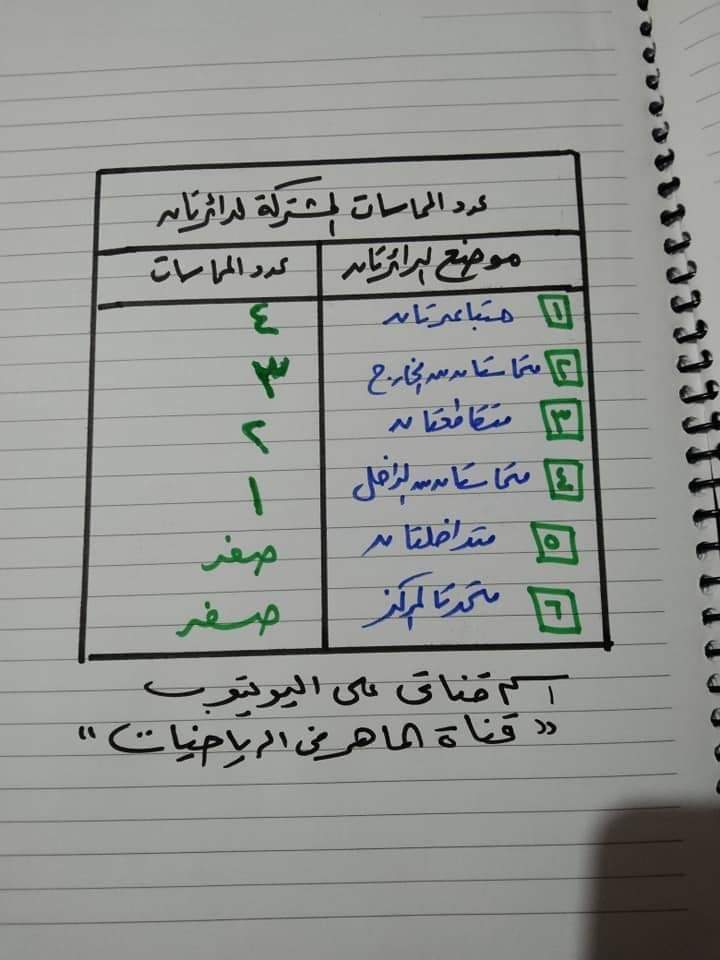 عدد المماسات المشتركة لدائرتان
موضع الدائرتان عدد المماسات
١ متباعدتان ٤
٢ متماستان من الخارج ٣
٣ متقاطعتان ٢
٤ متماستان من الداخل ١
٥ متداخلتان صفر
٦ متحدتا المركز صفر
اسم قناتى على اليوتيوب
"قناة الماهر فى الرياضيات"